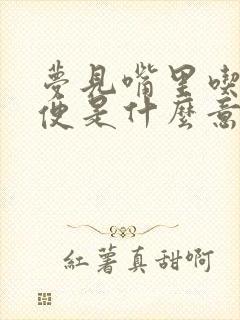 夢見嘴里喫
便是什麽意
紅薯真甜啊